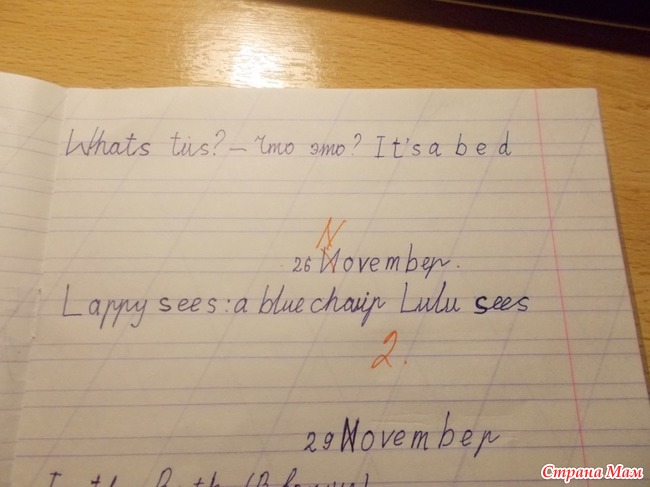 Whats tiis? – Что это? It's a bed
N
26 November.
Lappy sees: a blue chair Lulu sees
2.
29 November
Страна Мам